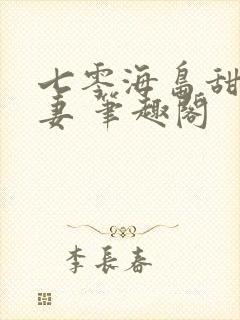 七零海岛甜
妻 笔趣阁
李長春